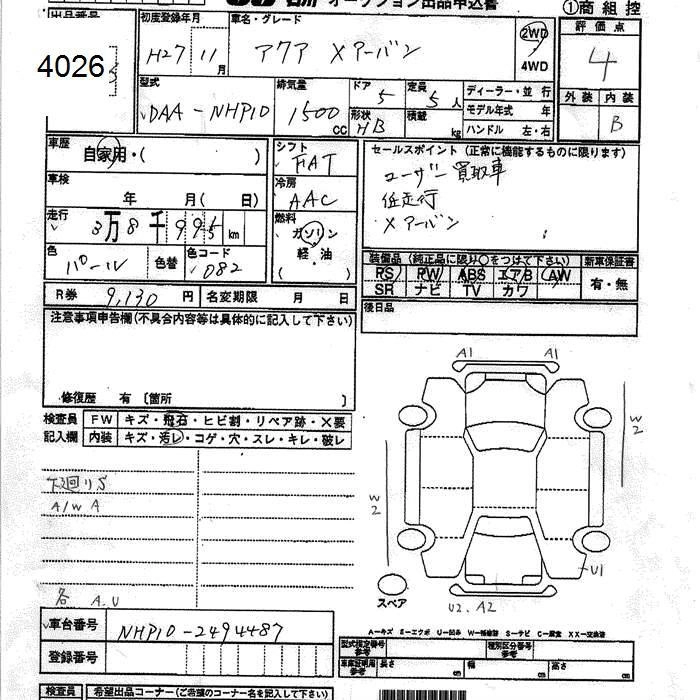 オークション出品申込書
①商組控
出品番号 初度登録年月 車名・グレード 評価点
4026 H27 11月 アクア Xアーバン 2WD 4WD 4
型式 排気量 ドア 定員 ディーラー・並行 外装 内装
DAA-NHP10 1500cc 5 5人 モデル年式 年 B
形状 HB 積載 kg ハンドル 左・右
車歴 自家用・( ) シフト FAT セールスポイント(正常に機能するものに限ります)
車検 年 月( 日) 冷房 AAC ユーザー買取車
低走行
Xアーバン
走行 3万8千995km 燃料 ガソリン 軽・油 ( )
色 パール 色替 色コード 082
装備品(純正品に限り○をつけて下さい) 新車保証書
PS PW ABS エアB AW 有・無
SR ナビ TV カワ
R券 9,130円 名変期限 月 日 後日品
注意事項申告欄(不具合内容等は具体的に記入して下さい)
修復歴 有 〔箇所 〕
検査員 記入欄
FW キズ・飛石・ヒビ割・リペア跡・×要
内装 キズ・汚レ・コゲ・穴・スレ・キレ・破レ
A1 A1
W2
W2
下廻りS
A/W A
U1
各 A.U
スペア
U2.A2
車台番号 NHP10-2494487
登録番号
A-キズ
型式指定番号 参考 種別区分番号 参考
車庫証明用 参考 長さ cm 幅 cm 高さ cm
検査員 希望出品コーナー(ご希望のコーナー名を記入して下さい)